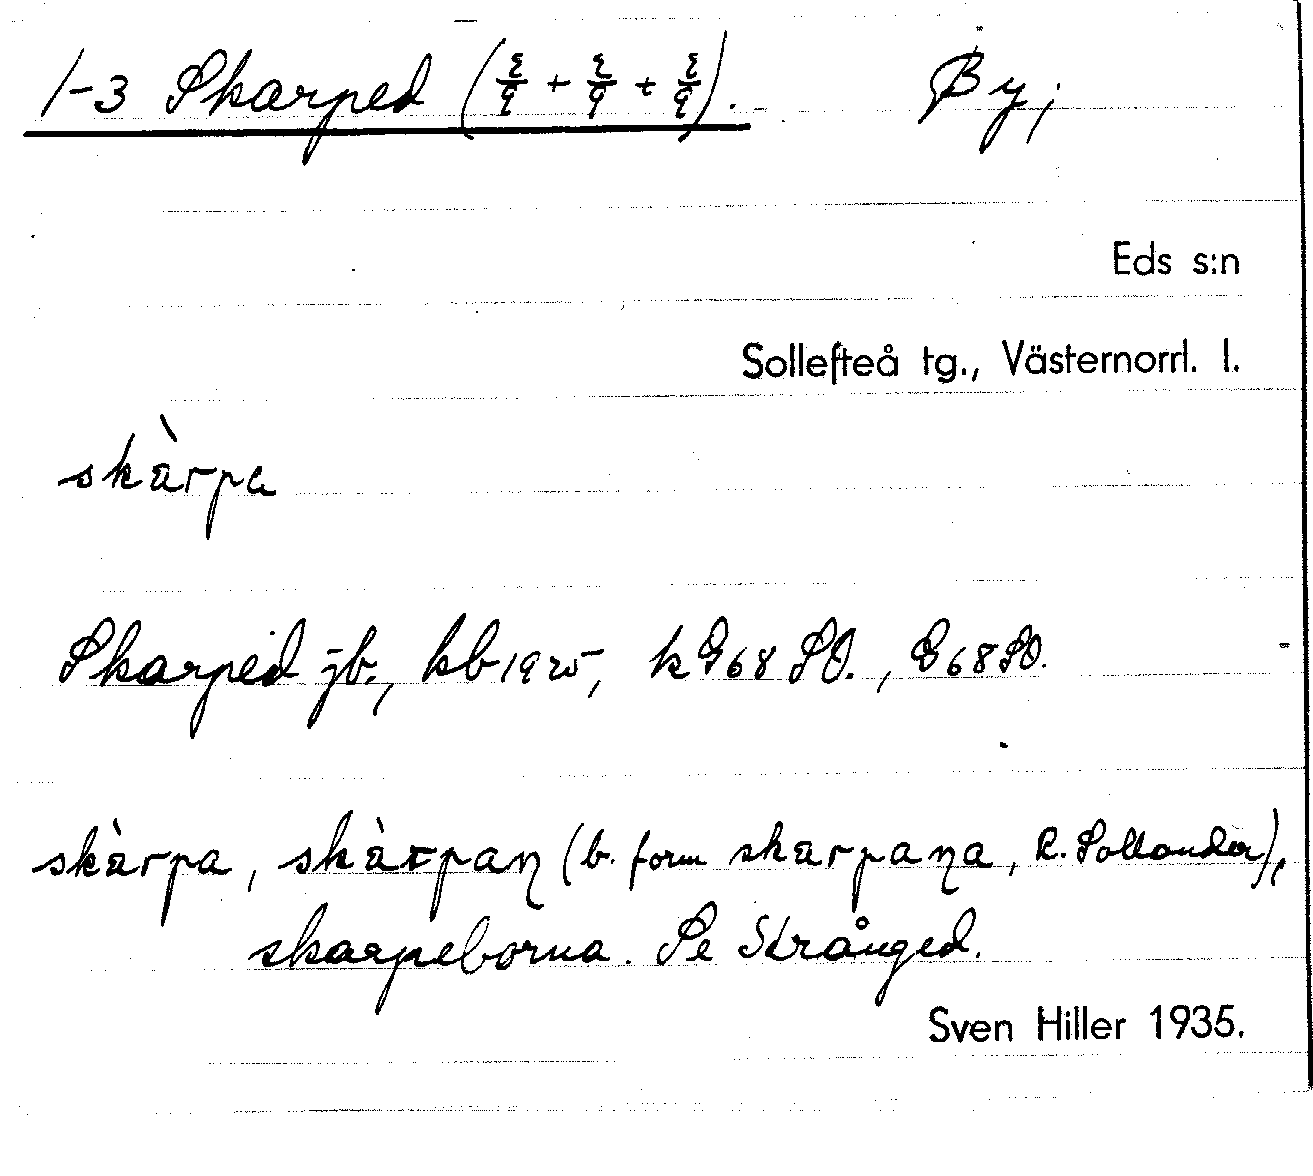 1-3 Skarped (ξ/q + ξ/q + ξ/q). By;
Eds s:n
Sollefteå tg., Västernorrl. l.
skàrpa
Skarped jb., kb 1925, k G68 SO., G68SO.
skàrpa, skàrpaη (b. form skarpaηa, R. Sollander),
skarpeborna. Se Strånged.
Sven Hiller 1935.